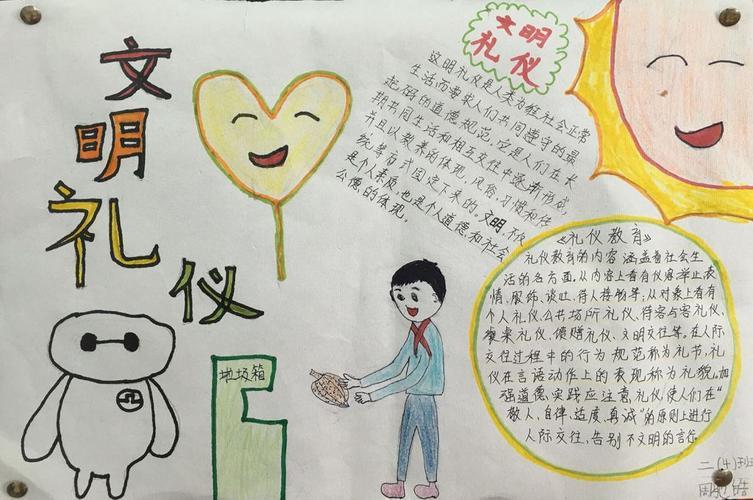 文明礼仪
文明
礼仪
这明礼仪是人类为维社会正常
生活而要求人们共同遵守的最
起码的道德规范,它是人们在长
期共同生活和相互交往中逐渐形成,
并且以 的体现,风俗、习惯和传
统等方式固定下来的,文明,不仅
是个人素质,也是个人道德和社会
公德的体现。
《礼仪教育》
礼仪教育的内容涵盖着社会生
活的各方面。从内容上看有仪容、举止、表
情、服饰、谈吐、待人接物等;从对象上看有
个人礼仪、公共场所礼仪、待客与客礼仪、
餐桌礼仪、馈赠礼仪、文明交往等。在人际
交往过程中的行为规范称为礼节,礼
仪在言语动作上的表现称为礼貌。加
强道德,实践应注意,礼仪使人们在“
敬人、自律、适度、真诚”的原则上进行
人际交往,告别不文明的言行
垃圾箱
二(4)班
周